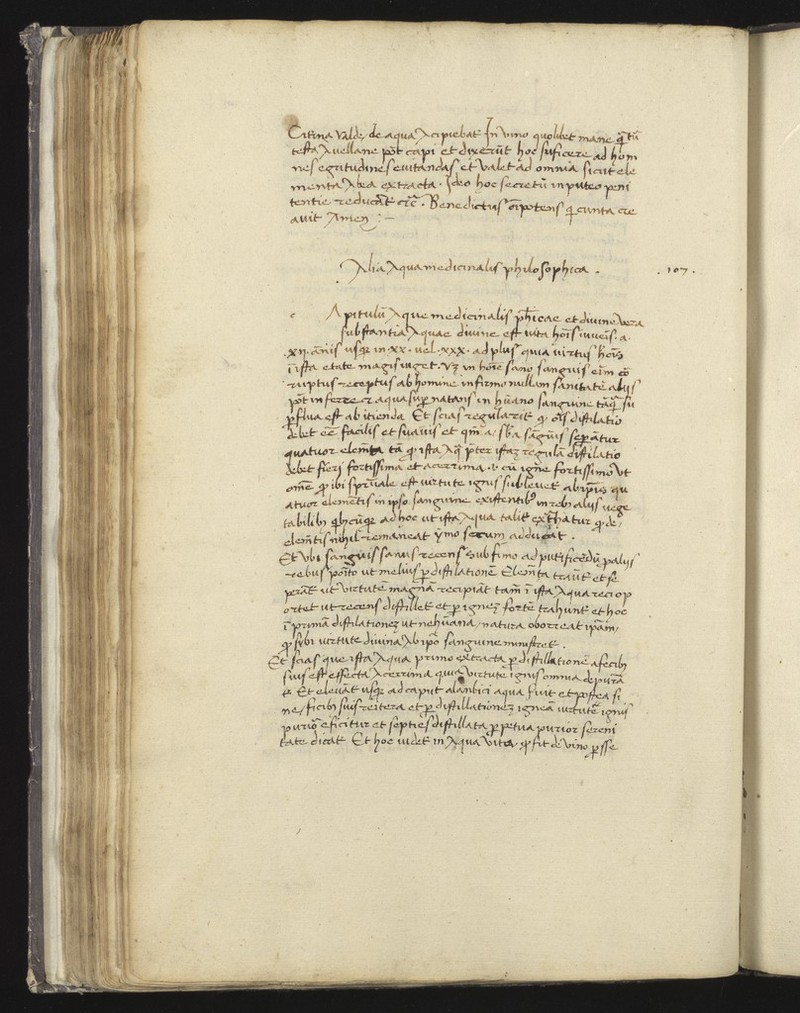 Citrina valde, de aqua Accipiebat In vino quolibet mane q̄tū
testa Avellane pōt capi et dixerūt hoc suficere ad hom
nes egritudines euitandas et valet ad omnia sicut ele
menta Abea extracta. Ideo hoc secretū in puteo peni
tentie reducāt etc̄. Benedictus oīpotens q̄ cunta cre
auit Amen :—
Alia Aqua medicinalis philosophica . . 107 .
c Apitulū Aque medicinalis ph̄icae et diuine vera
substantia Aquae diuine est vita hoīs iuuenis. a.
.xij. annis usqȝ in .xx. vel .xxx. ad plus quia virtus hoīs
ī ista etate magis uiget. Vȝ in hoīe sano sanguis eīm co
ruptus receptus ab homine infirmo nullam sanitatē alijs
pōt inferre et aqua supernatans in hūano sanguine tāq̄ su
perflua est abitienda. Et scias regulariter q. oīs distilatio
debet eē facilis et suauis et sba sāguīs seperātur
quatuor elemēta tn̄ q. ista Aq̄ preter istaȝ regulā distilatio
debet fieri fortissima et acerrima .i. cū igne fortissimo vt
omē q. ibi sprituale est virtute ignis subleuet ab ipsis qu
atuor elementis in ipso sanguine existentibȝ in rebȝ alijs vege
tabilibȝ qbuscūqȝ ad hoc ut ista Aqua talit extrhatur q. de,
elemētis nihil remaneat ymo secum adducat .
Et vbi sanguis sanus recens sub fimo ad putificēdū palijs
rebus ponito ut melius per distilationē Elemēta trauēt et se
perāt ut virtutē magnā recipiāt tamē ī ista Aqua reci op
ortet ut recens distillet et per igneȝ fortē trahunt et hoc
ī prima distilationeȝ ut ne hūana, natura oborreat ipām,
q. sybi virtute diuina Ab ipo sanguine ministret .
Et scias que ista Aqua primo extracta per distillationē afecibȝ
suis est effecta Acerrima quia virtute ignis omnia depura
t. Et eleuāt usqȝ ad caput alanbici aqua fuit et postea si
ne, ficibȝ suis reitera et per distillationeȝ igneā virtutē ignis
purior eficitur et septies distillata perpetua purior sereni
tate dicāt Et hoc uidet in Aqua vite, q. fit de vino per sse